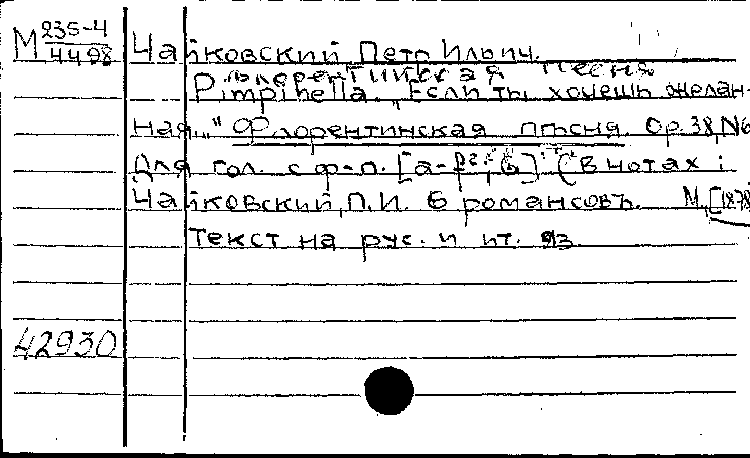 М 235-4
4498
Чайковский Петр Ильич.
Флорентийская песня
Pimpinella. "Если ты хочешь желан-
ная..." Флорентинская пѣсня. Ор. 38, N6
Для гол. с ф-п. (В нотах:
Чайковский, П.И. 6 романсовъ. М., [1878
Текст на рус. и ит. яз.
42930